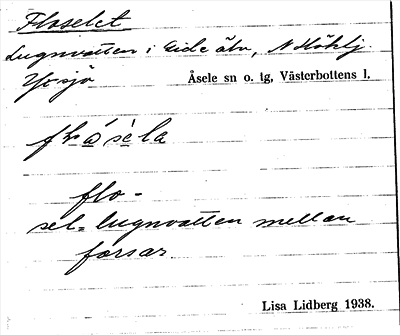 Floselet
Lugnvatten i Eide älv, N Höhlj.
Yxsjö
Åsele sn o. tg, Västerbottens l.
flo-
sel = lugnvatten mellan
forsar
Lisa Lidberg 1938.